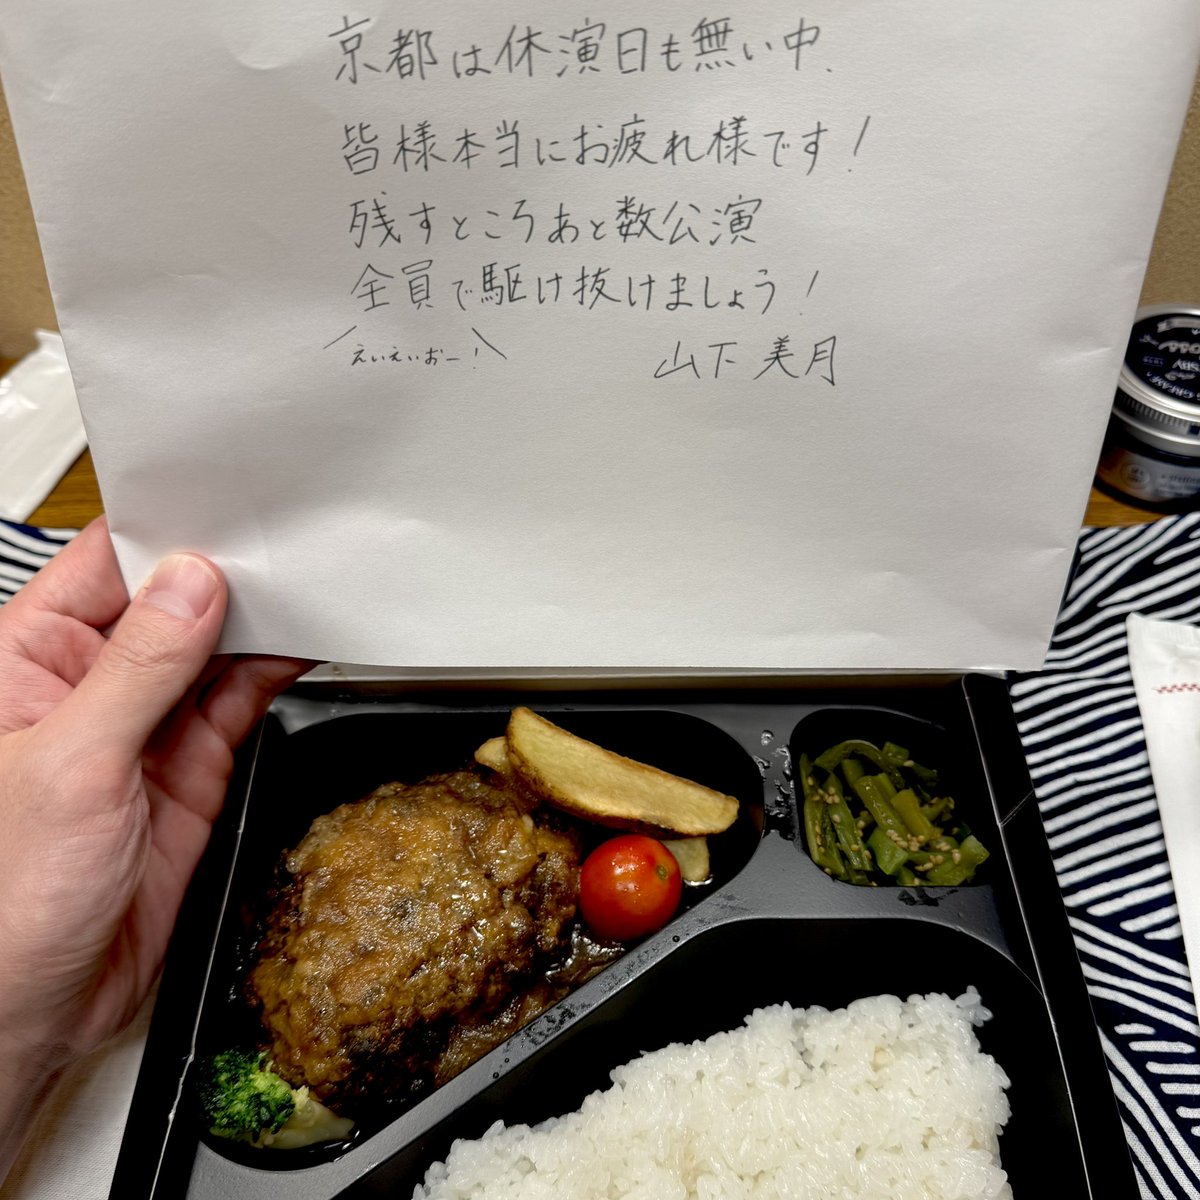 京都は休演日も無い中、
皆様本当にお疲れ様です！
残すところあと数公演
全員で駆け抜けましょう！
＼えいえいおー！／
山下美月